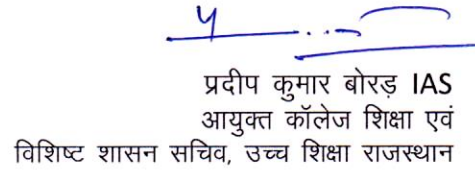 प्रदीप कुमार बोरड़ IAS
आयुक्त कॉलेज शिक्षा एवं
विशिष्ट शासन सचिव, उच्च शिक्षा राजस्थान